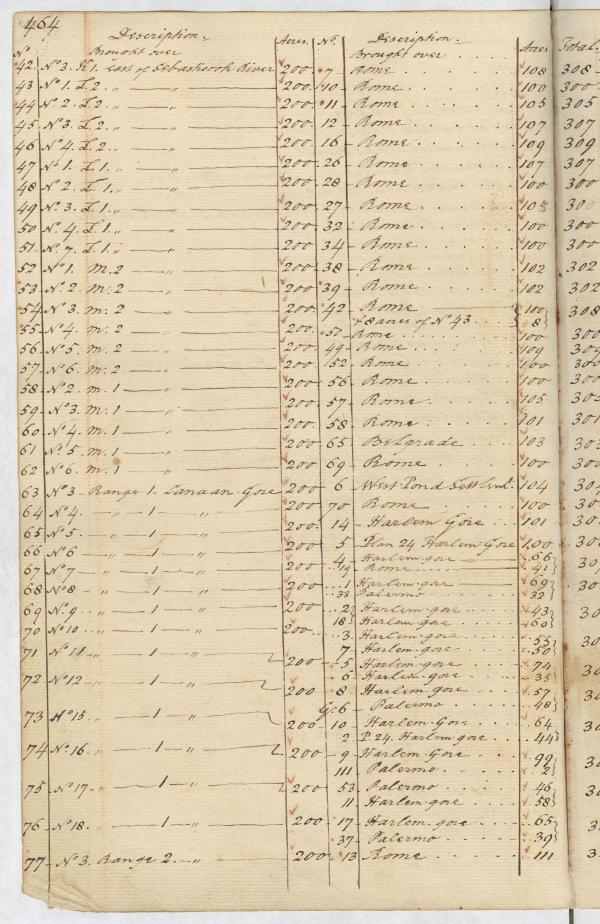 464
Description. Acres. No. Description. Acres Total.
No Brought over Brought over
42. No 3. K 1. east of Sebasticook River 200. 7 - Rome 108 308
43 No 1. L. 2. " — " 200. 10 - Rome 100 300
44 No 2. L. 2. " — " 200. 11 - Rome 105 305
45 No 3. L. 2. " — " 200. 12 - Rome 107 307
46 No 4. L. 2. " — " 200. 16 - Rome 109 309
47 No 1. L. 1. " — " 200. 26 - Rome 107 307
48 No 2. L. 1. " — " 200. 28 - Rome 100 300
49 No 3. L. 1. " — " 200. 27 - Rome 105 30
50 No 4. L. 1. " — " 200. 32 - Rome 100 300
51 No 7. L. 1. " — " 200. 34 - Rome 100 300
52 No 1. M. 2 — " 200. 38 - Rome 102 302
53 No 2. M. 2 — " 200 39 - Rome 102 302
54 No 3. M. 2 — " 200 42 - Rome 100 308
& 8 acres of No 43 8
55 No 4. M. 2 — " 200. Rome 100 300
56 No 5. M. 2 — " 200 49 - Rome 109 309
57 No 6. M. 2 — " 200 52 - Rome 100 300
58 No 2. M. 1 — " 200 56 - Rome 100 300
59 No 3. M. 1 — " 200 57 - Rome 105 305
60 No 4. M. 1 — " 200. 58 - Rome 101 301
61 No 5. M. 1 — " 200 65 Belgrade 103 303
62 No 6. M. 1 — " 200 69 - Rome 100 300
63 No 3 - Range 1. Canaan Gore 200 6 - West Pond Settlmt. 104 30
64 No 4. — " — 1 — " 200 70 - Rome 100 30
65 No 5. — " — 1 — " 200. 14 - Harlem Gore 101 30
66 No 6 — " — 1 — " 200 5 - Plan 24 Harlem Gore 100 30
67 No 7 — " — 1 — " 200 4 - Harlem gore 66
19 - Rome 41 30
68 No 8 — " — 1 — " 200 1 Harlem gore 69
33 Palermo 32 30
69 No 9. — " — 1 — " 200 2 Harlem gore 43
18 Harlem gore 60 30
70 No 10. — " — 1 — " 200. 3. Harlem gore 55
7 Harlem gore 50 30
71 No 11 — " — 1 — " 200 5 Harlem gore 74
6 Harlem gore 35 30
72 No 12 — " — 1 — " 200 8 Harlem gore 57
6 - Palermo 48 30
73 No 15 — " — 1 — " 200 10 Harlem Gore 64
2 P. 24. Harlem gore 44 30
74 No 16. — " — 1 — " 200 9 - Harlem Gore 99
111 Palermo 2 30
75 No 17 — " — 1 — " 200 53 Palermo 46
11 Harlem gore 58 30
76 No 18. — " — 1 — " 200 17 Harlem gore 65
37 - Palermo 39 3
77 - No 3. Range 2. — " 200 13 Rome 111 3